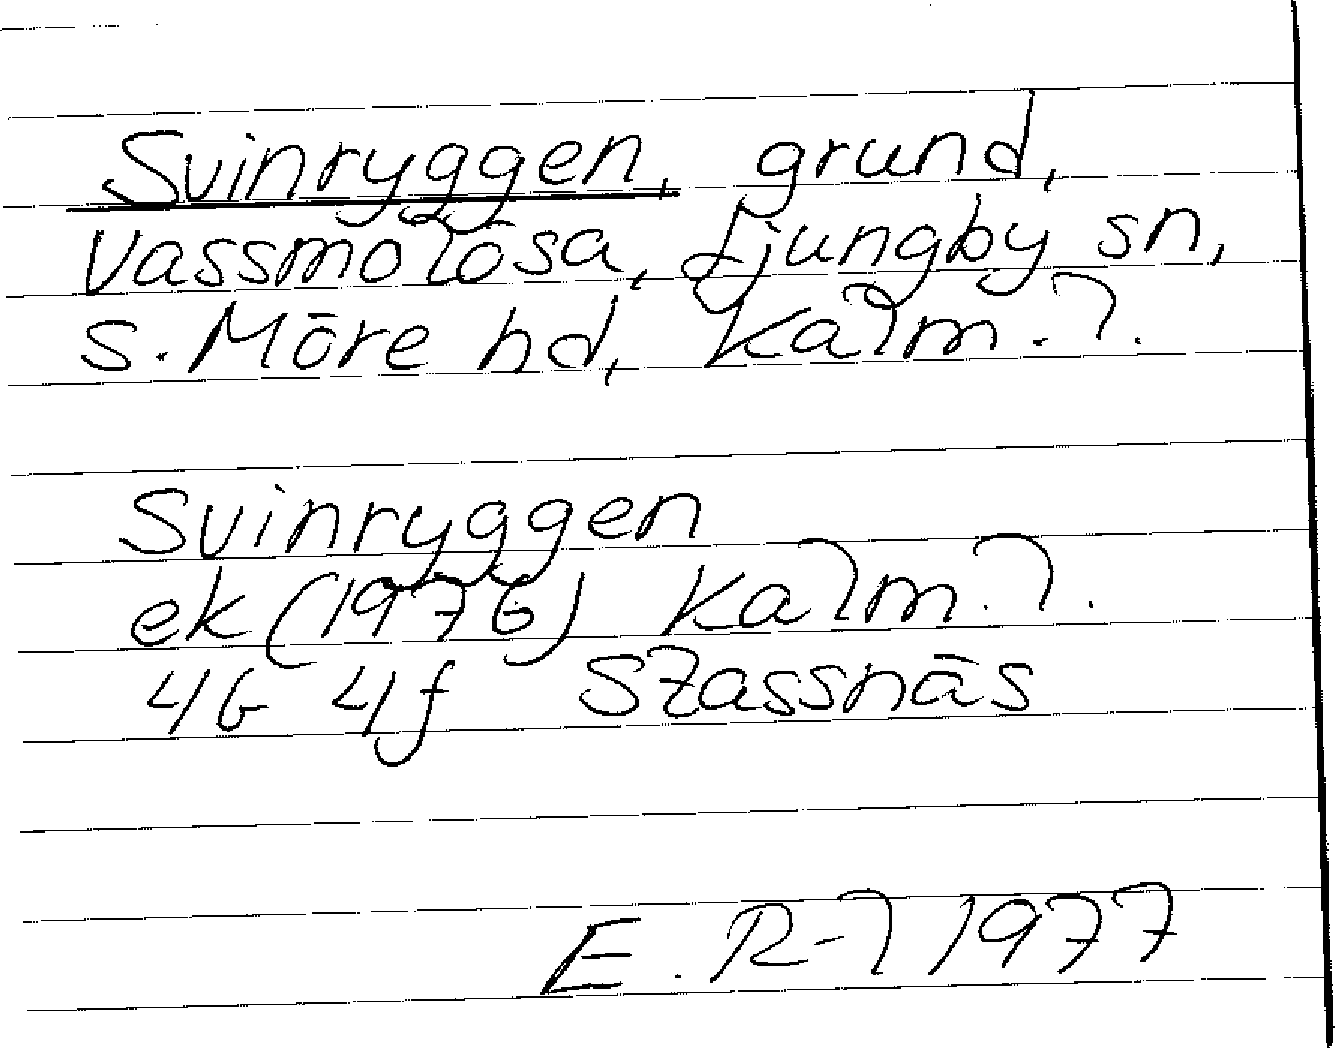 Svinryggen, grund,
Vassmolösa, Ljungby sn,
S. Möre hd, Kalm. l.
Svinryggen
ek (1976) Kalm. l.
4G 4f Slassnäs
E. R-l 1977